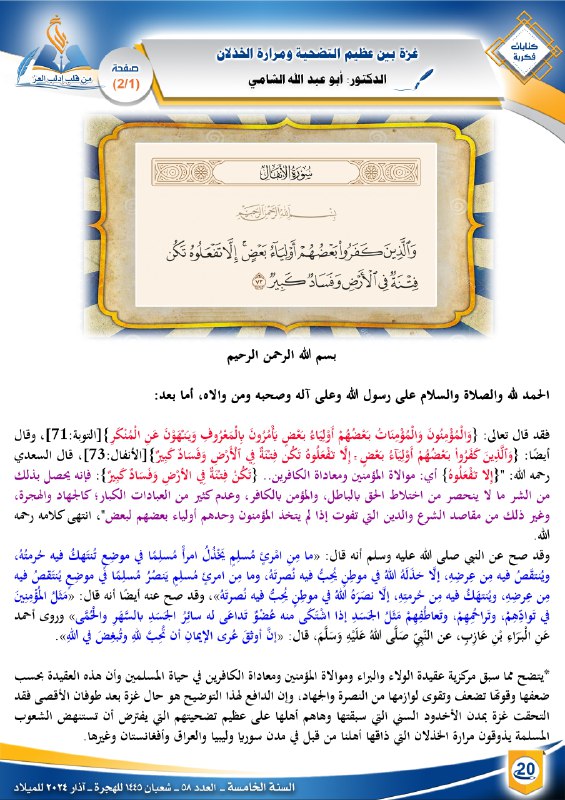 كتابات
فكرية
غزة بين عظيم التضحية ومرارة الخذلان
الدكتور: أبو عبد الله الشامي
صفحة
(2/1)
من قلب إدلب العز
سورة الأنفال
بسم الله الرحمن الرحيم
وَالَّذِينَ كَفَرُوا بَعْضُهُمْ أَوْلِيَاءُ بَعْضٍ إِلَّا تَفْعَلُوهُ تَكُن
فِتْنَةٌ فِي الْأَرْضِ وَفَسَادٌ كَبِيرٌ ٧٣
بسم الله الرحمن الرحيم
الحمد لله والصلاة والسلام على رسول الله وعلى آله وصحبه ومن والاه، أما بعد:
فقد قال تعالى: {وَالْمُؤْمِنُونَ وَالْمُؤْمِنَاتُ بَعْضُهُمْ أَوْلِيَاءُ بَعْضٍ يَأْمُرُونَ بِالْمَعْرُوفِ وَيَنْهَوْنَ عَنِ الْمُنْكَرِ}[التوبة:71]، وقال
أيضًا: {وَالَّذِينَ كَفَرُوا بَعْضُهُمْ أَوْلِيَاءُ بَعْضٍ ۚ إِلَّا تَفْعَلُوهُ تَكُنْ فِتْنَةٌ فِي الْأَرْضِ وَفَسَادٌ كَبِيرٌ}[الأنفال:73]، قال السعدي
رحمه الله: "{إِلا تَفْعَلُوهُ} أي: موالاة المؤمنين ومعاداة الكافرين.. {تَكُنْ فِتْنَةٌ فِي الأَرْضِ وَفَسَادٌ كَبِيرٌ}: فإنه يحصل بذلك
من الشر ما لا ينحصر من اختلاط الحق بالباطل، والمؤمن بالكافر، وعدم كثير من العبادات الكبار؛ كالجهاد والهجرة،
وغير ذلك من مقاصد الشرع والدين التي تفوت إذا لم يتخذ المؤمنون وحدهم أولياء بعضهم لبعض"، انتهى كلامه رحمه
الله.
وقد صح عن النبي صلى الله عليه وسلم أنه قال: «ما مِن امْرِئٍ مُسلِمٍ يَخْذُلُ امرأً مُسلِمًا في موضِعٍ تُنتَهكُ فيه حُرمتُهُ،
ويُنتَقصُ فيه مِن عِرضِهِ، إلَّا خذَلَهُ اللهُ في موطِنٍ يُحِبُّ فيه نُصرتَهُ، وما مِن امرئٍ مُسلِمٍ يَنصُرُ مُسلِمًا في موضِعٍ يُنتَقصُ فيه
مِن عِرضِهِ، ويُنتَهكُ فيه مِن حُرمتِهِ، إلَّا نصَرَهُ اللهُ في موطِنٍ يُحِبُّ فيه نُصرتَهُ»، وقد صح عنه أيضا أنه قال: «مَثَلُ الْمُؤْمِنِينَ
في تَوادِّهِمْ، وتَراحُمِهِمْ، وتَعاطُفِهِمْ مَثَلُ الجَسَدِ إذا اشْتَكَى منه عُضْوٌ تَداعَى له سائِرُ الجَسَدِ بالسَّهَرِ والْحُمَّى» وروى أحمد
عَنِ الْبَرَاءِ بْنِ عَازِبٍ، عن النَّبِيِّ صَلَّى اللهُ عَلَيْهِ وَسَلَّمَ، قال: «إنَّ أوثقَ عُرى الإيمانِ أن تُحِبَّ للهِ وتُبغِضَ في اللهِ».
*يتضح مما سبق مركزية عقيدة الولاء والبراء وموالاة المؤمنين ومعاداة الكافرين في حياة المسلمين وأن هذه العقيدة بحسب
ضعفها وقوتها تضعف وتقوى لوازمها من النصرة والجهاد، وإن الدافع لهذا التوضيح هو حال غزة بعد طوفان الأقصى فقد
التحقت غزة بمدن الأخدود السني التي سبقتها وهاهم أهلها على عظيم تضحيتهم التي يفترض أن تستنهض الشعوب
المسلمة يذوقون مرارة الخذلان التي ذاقها أهلنا من قبل في مدن سوريا وليبيا والعراق وأفغانستان وغيرها.
20
السنة الخامسة - العدد ٥٨ - شعبان ١٤٤٥ للهجرة - آذار ٢٠٢٤ للميلاد